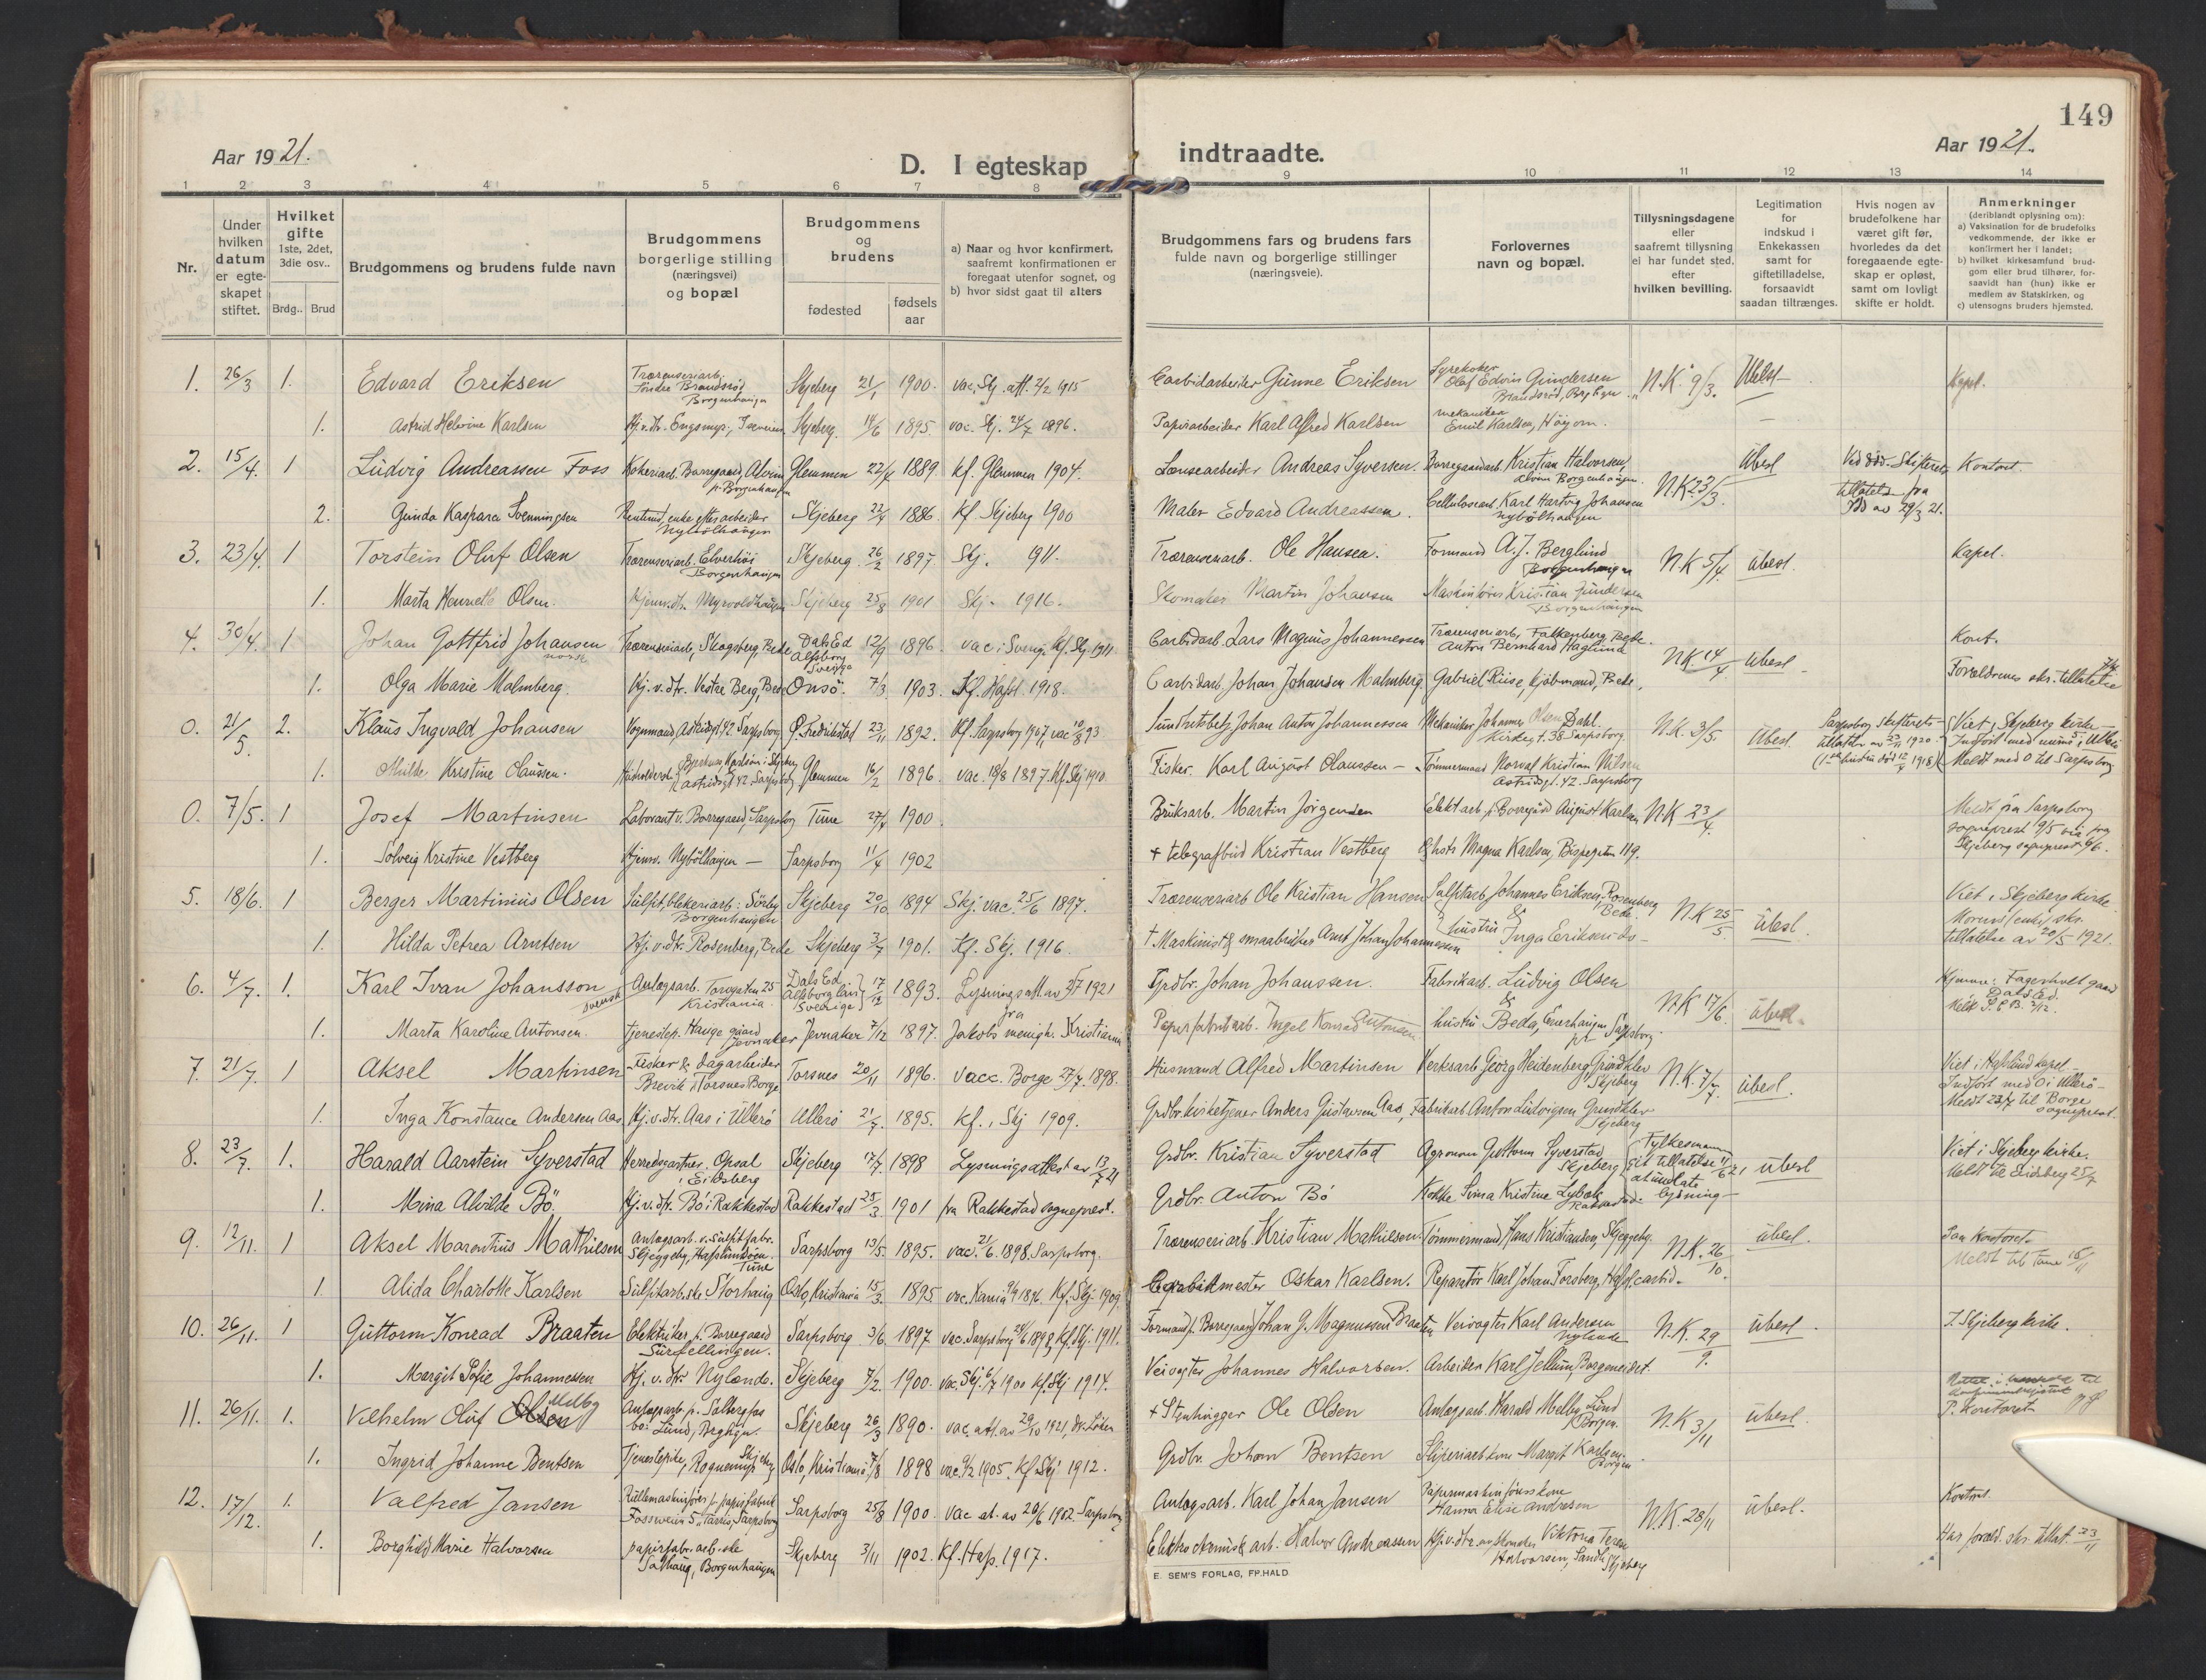 149
Aar 1921.
D. I egteskap indtraadte.
Aar 1921.
1 2 3 4 5 6 7 8 9 10 11 12 13 14
Nr.
Under hvilken datum er egteskapet stiftet.
Hvilket gifte
1ste, 2det, 3die osv..
Brdg.. Brud
Brudgommens og brudens fulde navn
Brudgommens borgerlige stilling (næringsvei) og bopæl
Brudgommens og brudens
fødested
fødsels aar
a) Naar og hvor konfirmert, saafremt konfirmationen er foregaat utenfor sognet, og
b) hvor sidst gaat til alters
Brudgommens fars og brudens fars fulde navn og borgerlige stillinger (næringsveie).
Forlovernes navn og bopæl.
Tillysningsdagene eller saafremt tillysning ei har fundet sted, efter hvilken bevilling.
Legitimation for indskud i Enkekassen samt for giftetilladelse, forsaavidt saadan tiltrænges.
Hvis nogen av brudefolkene har været gift før, hvorledes da det foregaaende egteskap er opløst, samt om lovligt skifte er holdt.
Anmerkninger (deriblandt oplysning om):
a) Vaksination for de brudefolks vedkommende, der ikke er konfirmert her i landet;
b) hvilket kirkesamfund brudgom eller brud tilhører, forsaavidt han (hun) ikke er medlem av Statskirken, og
c) utensogns bruders hjemsted.
1. 26/3 1. Edvard Eriksen Træsenseriarb. Brandsrød Borgenhaugen Skjeberg 21/1 1900. vac. Skj. att. 2/2 1915 Carbidarbeider Gunne Eriksen Syrekoker Olaf Edvin Gundersen N.K. 9/3. Ubesl — Kapel.
1. Astrid Helvine Karlsen Hj.v.dtr. Engsmyr, Skjeberg. 14/6 1895. vac. Skj. 24/7 1896. Papirarbeider Karl Alfred Karlsen mekaniker Emil Karlsen, —
2. 15/4. 1 Ludvig Andreassen Foss Kokeriarb. Borregaard, Alvim p. Borgenhaugen Glemmen 22/4 1889 Kf. Glemmen 1904. Lensearbeider Andreas Syversen. Borregaardarb. Kristian Halvorsen, Alvim Borgenhaugen. N.K. 23/3. Ubesl Ved død. Skifterets Kontoret.
2. Gunda Kaspara Svenningsen enke efter arbeider Nybølhaugen Skjeberg 22/4 1886 Kf. Skjeberg 1900 Maler Edvard Andreassen. Cellulosearb. Karl Hartvig Johansen Nybølhaugen tillatelse fra av 29/3 21.
3. 23/4. 1 Torstein Oluf Olsen Træsenseriarb. Elverhöi Borgenhaugen Skjeberg 26/2 1897 Skj. 1911. Træsenserarb. Ole Hansen. Formand A.J. Berglund Borgenhaugen N.K 5/4. ubesl. Kapel.
1. Marta Henriette Olsen. Hjemv.dtr. Myrvoldhaugen Skjeberg 25/8 1901 Skj. 1916. Skomaker Martin Johansen Maskinfører Kristian Gundersen Borgenhaugen
4. 30/4. 1 Johan Gottfrid Johansen norsk Træsenseriarb, Skogsberg, Bede Dals Ed Alfsborg Sverige 12/9 1896. vac i Sverige Kf. Skj. 1911. Carbidarb. Lars Magnus Johannessen Træsenseriarb. Falkenberg Bede. Anton Bernhard Haglund N.K. 14/4 Ubesl — Kont.
1. Olga Marie Malmberg. Hj. v. dtr. Vestre Berg, Bede Onsö. 7/3 1903. Kf. Hafsl. 1918. Carbidarb. Johan Johansen Malmberg. Gabriel Riise, kjöbmand, Bede. Forældrenes skr. tillatelse
0. 21/5. 2. Klaus Ingvald Johansen Vognmand, Astridsgt. 42 Sarpsborg Ø. Fredrikstad 23/11 1892. Kf. Sarpsborg 1907, vac 10/8 93 Johan Anton Johannessen Mekaniker Johannes Olsen Dahl. Kirkegt. 38 Sarpsborg N.K. 3/5. Ubesl. Sarpsborg skifterets tillatelse av 23/11 1920. (1ste hustru död 12/7 1918) Viet i Skjeberg kirke
1. Milde Kristine Olaussen. Husholderske Astridsgt 42. Sarpsborg Glemmen 16/2 1896. vac. 18/8 1897. Kf. Skj 1910. Fisker. Karl August Olaussen — Tømmermand Norval Kristian Nilsen Astridsgt. 42. Sarpsborg Meldt med 0 til Sarpsborg
0. 7/5. 1 Josef Martinsen Laborant v. Borregaard, Sarpsborg Tune 27/4 1900. Bruksarb. Martin Jörgensen Elekt arb p. Borregård August Karlsen N.K 23/4. Meldt fra Sarpsborg sogneprest 9/5
1. Solveig Kristine Vestberg Hjemv. Nybölhaugen — Sarpsborg 11/4 1902 + telegrafbud Kristian Vestberg & hstr Magna Karlsen, Bispegaten 119. Skjeberg sogneprest 6/6.
5. 18/6. 1 Berger Martinius Olsen Sulfit, blekeriarb: Sörby Borgenhaugen Skjeberg 20/10 1894 Skj. vac. 25/6 1897. Træsenseriarb Ole Kristian Hansen Sulfitarb. Johannes Eriksen, Rosenberg Bede. N.K 25/5 ubesl. Viet i Skjeberg kirke.
1. Hilda Petrea Arntsen Hj. v. dtr. Rosenberg, Bede Skjeberg 3/7 1901. Kf. Skj. 1916. + Maskinist & smaabruker Arnt Johan Johannessen & hustru Inga Eriksen ds — Morens (enke) skr. tillatelse av 20/5 1921.
6. 4/7. 1. Karl Ivan Johansson svensk Anlægsarb. Torvgaten 25 Kristiania Dals Ed Alfsborg län Sverige 17/12 1893. Lysningsatt. av 2/7 1921 fra Grdbr. Johan Johansson. Fabrikarb. Ludvig Olsen & N.K 17/6. ubesl. Hjemme: Fagerhult gaard Dals Ed.
1. Marta Karoline Antonsen. tjenestep. Hauge gaard Jevnaker Jevnaker 7/12 1897. Jakobs menigh. Kristiania Papirfabrikarb. Ingel Konrad Antonsen hustru Beda, Enerhaugen Sarpsborg
7. 21/7. 1 Aksel Martinsen Fisker & dagarbeider Brevik i Torsnes Borge Torsnes 20/11 1896. vacc. Borge 27/7 1898. Husmand Alfred Martinsen Verksarb. Georg Heidenberg, Grindklev Skjeberg N.K. 7/7. ubesl. Viet i Hafslund kapel — Indført med 0 i Ullerö — Meldt 23/7 til Borge sogneprest.
1. Inga Konstance Andersen Aas Hj. v. dtr. Aas i Ullerö Ullerö 21/7. 1895. Kf. i Skj 1909. Grdbr. kirketjener Anders Gustavsen Aas, Fabrikarb. Anton Ludvigsen Grindklev Skjeberg
8. 23/7. 1. Harald Aarstein Syverstad Herredsgartner. Opsal i Eidsberg Skjeberg 17/7 1898 Lysningsattest av 13/7 21 Grdbr. Kristian Syverstad Agronom Guttorm Syverstad Skjeberg Fylkesmann git tillatelse 11/6 21 at undlate lysning — ubesl Viet i Skjeberg kirke. Meldt til Eidsberg 25/7
1. Mina Alvilde Bö. Hj. v. dtr. Bö i Rakkestad Rakkestad 25/3 1901 fra Rakkestad sogneprest. Grdbr. Anton Bö Kokke Svina Kristine Lybæk Rakkestad
9. 12/11. 1 Aksel Marentius Mathiesen Anlægsarb. v. Sulfitfabr. Skjeggeby, Hafslundsöen. Tune Sarpsborg 13/5. 1895. vac. 21/6. 1898. Sarpsborg. Træsenseriarb. Kristian Mathiesen. Tømmermand Hans Kristiansen, Skjeggeby. N.K. 26/10. ubesl. Paa Kontoret. Meldt til Tune 15/11
1. Alida Charlotte Karlsen Sulfitarb.ske. Storhaug Oslo, Kristiania 15/3. 1895. vac. Kania 1896. Kf. Skj. 1909. Carbidmester Oskar Karlsen. Reparatör Karl Johan Torsberg, Hafsl. carbid.
10. 26/11. 1 Guttorm Konrad Braaten Elektriker p. Borregaard Surfellingen. Sarpsborg 3/6. 1897 vac. Sarpsborg 1898, Kf. Skj. 1911. Formand p. Borregaard Johan G. Magnussen Braaten Veivogter Karl Andersen Nylende N.K. 29/9. ubesl. I Skjeberg kirke.
1. Margit Sofie Johannessen Hj. v. dtr Nylende. Skjeberg 7/2. 1900. vac. Skj. 6/7 1900 Kf. Skj 1914. Veivogter Johannes Halvorsen. Arbeider Karl Jellum, Borgemeidet.
11. 26/11. 1. Vilhelm Oluf Olsen Melby Anlægsarb. p. bo: Lund, Brghgn. Skjeberg 26/3 1890. vac. att. av 29/10 1921, dr. Löken + Stenhugger Ole Olsen Anlægsarb. Harald Melby, Lund Borgen. N.K 3/11 ubesl. P. Kontoret
1. Ingrid Johanne Bentsen Tjenestepike, Skjeberg Oslo, Kristiania 7/8 1898 vac. 9/2 1905. Kf. Skj 1912. Grdbr. Johan Bentsen Sliperiarb kone Margit Karlsen. Borgen.
12. 17/12. 1. Valfred Jansen Rullemaskinfører p. papirfabrik Sarpsborg Sarpsborg 25/8 1900. vac at. av 20/6 1902. Sarpsborg Anlægsarb. Karl Johan Jansen Papirmaskinførers kone Hanna Elise Andresen N.K. 28/11 ubesl. Kontoret.
1. Borghild Marie Halvorsen papirfabr. arb.ske Solhaug, Borgenhaugen Skjeberg 3/11 1902. Kf. Hafs. 1917. Elektrokemisk arb. Halvor Andreassen Hj. v. dtr. Viktoria Halvorsen, Sandli Skjeberg Har foræld. skr. tillat. 23/11
E. SEM'S FORLAG, FR.HALD